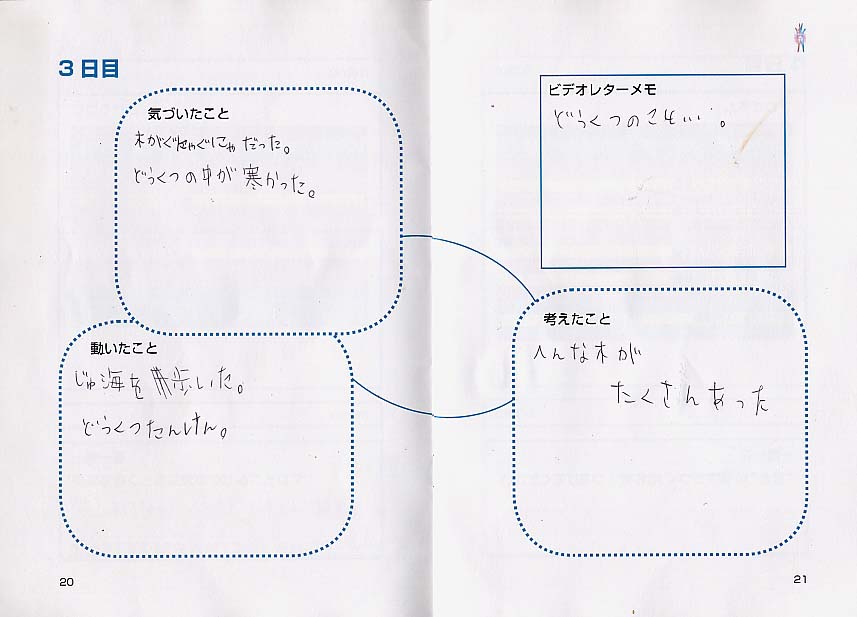 3日目
気づいたこと
木がぐにゃぐにゃだった。
どうくつの中が寒かった。
動いたこと
じゅ海を歩いた。
どうくつたんけん。
20
ビデオレターメモ
どうくつのこと…。
考えたこと
へんな木が
たくさんあった
21